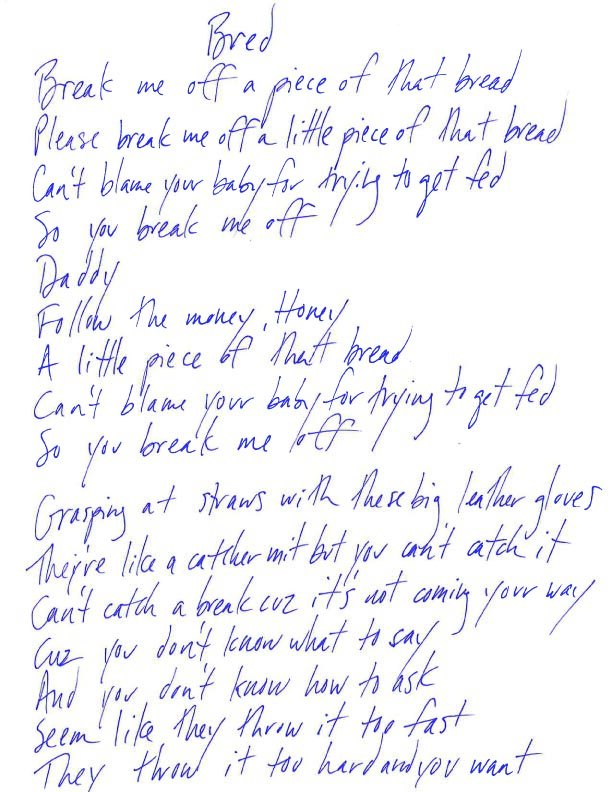 Bred
Break me off a piece of that bread
Please break me off a little piece of that bread
Can't blame your baby for trying to get fed
So you break me off
Daddy
Follow the money, Honey
A little piece of that bread
Can't blame your baby for trying to get fed
So you break me off
Grasping at straws with these big leather gloves
They're like a catcher mit but you can't catch it
Can't catch a break cuz it's not coming your way
Cuz you don't know what to say
And you don't know how to ask
Seem like they throw it too fast
They throw it too hard and you want